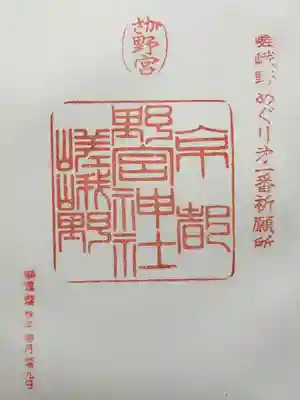 嵯峨野めぐり才一番祈願所
さが野宮
京都
野宮神社
嵯峨野